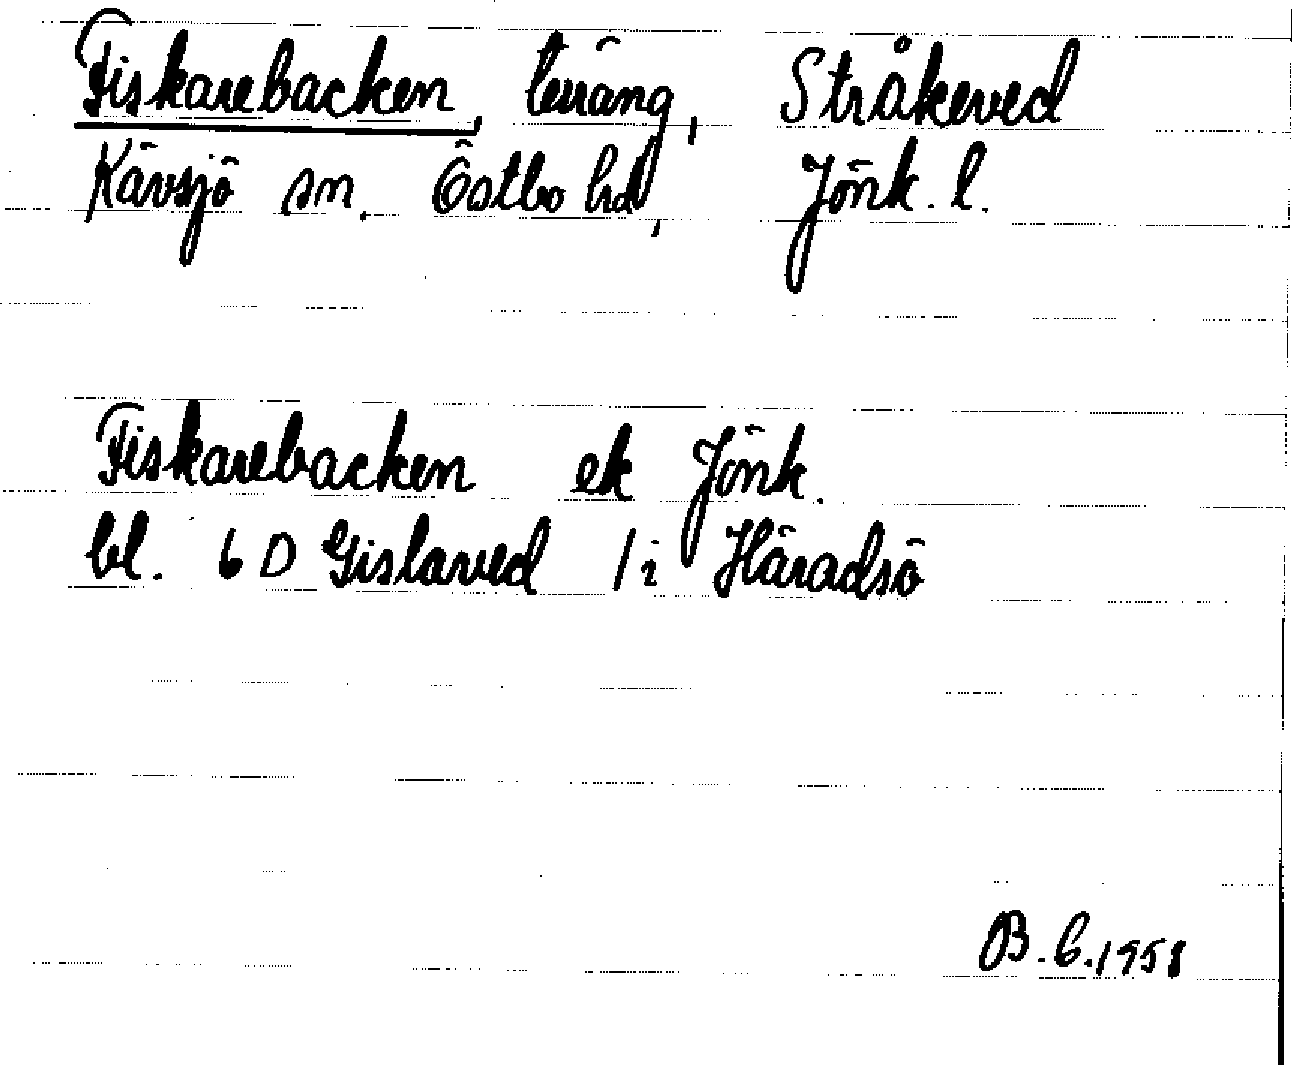 Fiskarebacken, terräng, Stråkeved
Kävsjö sn. Östbo hd, Jönk. l.
Fiskarebacken ek Jönk.
bl. 6 D Gislaved 1i Häradsö
B.C. 1958